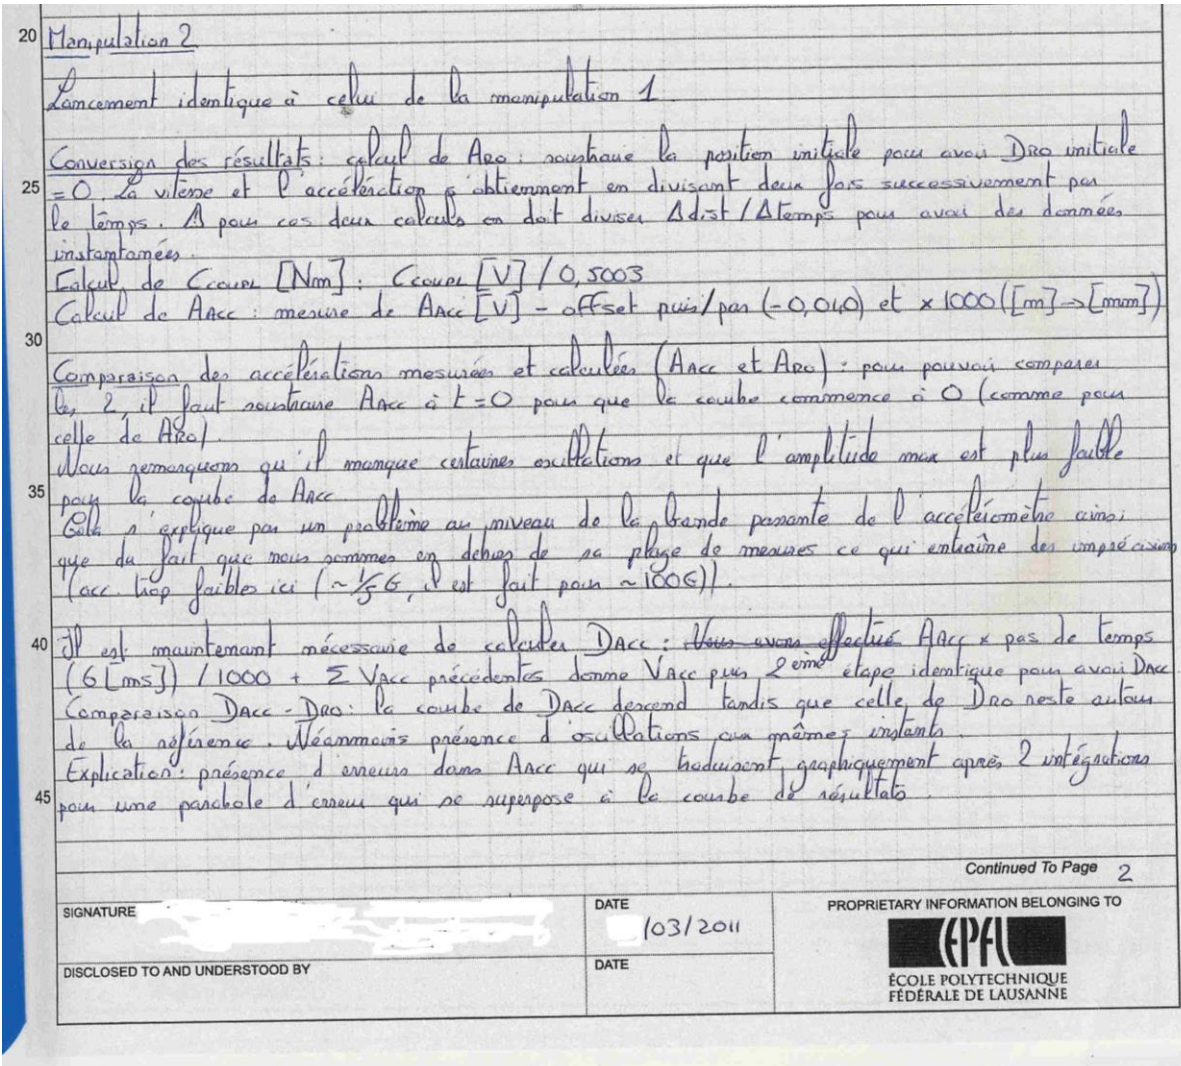 20 Manipulation 2
Lancement identique à celui de la manipulation 1
Conversion des résultats : calcul de ARO : soustraire la position initiale pour avoir DRO initiale
25 = 0. La vitesse et l'accélération s'obtiennent en divisant deux fois successivement par
le temps. ⚠ pour ces deux calculs on doit diviser Δdist/Δtemps pour avoir des données
instantanées.
Calcul de CCOUPL [Nm] : CCOUPL [V] / 0,5003
Calcul de AACC : mesure de AACC [V] - offset puis/par (-0,040) et x 1000 ([m]→[mm])
30
Comparaison des accélérations mesurées et calculées (AACC et ARO) : pour pouvoir comparer
les 2, il faut soustraire AACC à t=0 pour que la courbe commence à 0 (comme pour
celle de ARO).
Nous remarquons qu'il manque certaines oscillations et que l'amplitude max est plus faible
35 pour la courbe de AACC
Cela s'explique par un problème au niveau de la bande passante de l'accéléromètre ainsi
que du fait que nous sommes en dehors de sa plage de mesures ce qui entraîne des imprécisions
(acc. trop faibles ici (~1/5 G, il est fait pour ~100G)).
40 Il est maintenant nécessaire de calculer DACC : Nous avons effectué AACC x pas de temps
(6[ms]) / 1000 + Σ VACC précédentes donne VACC puis 2ème étape identique pour avoir DACC
Comparaison DACC - DRO : la courbe de DACC descend tandis que celle de DRO reste autour
de la référence. Néanmoins présence d'oscillations aux mêmes instants.
Explication : présence d'erreurs dans AACC qui se traduisent graphiquement après 2 intégrations
45 par une parabole d'erreur qui se superpose à la courbe de résultats.
Continued To Page 2
SIGNATURE
DATE
/03/2011
PROPRIETARY INFORMATION BELONGING TO
DISCLOSED TO AND UNDERSTOOD BY
DATE
EPFL
ÉCOLE POLYTECHNIQUE
FÉDÉRALE DE LAUSANNE